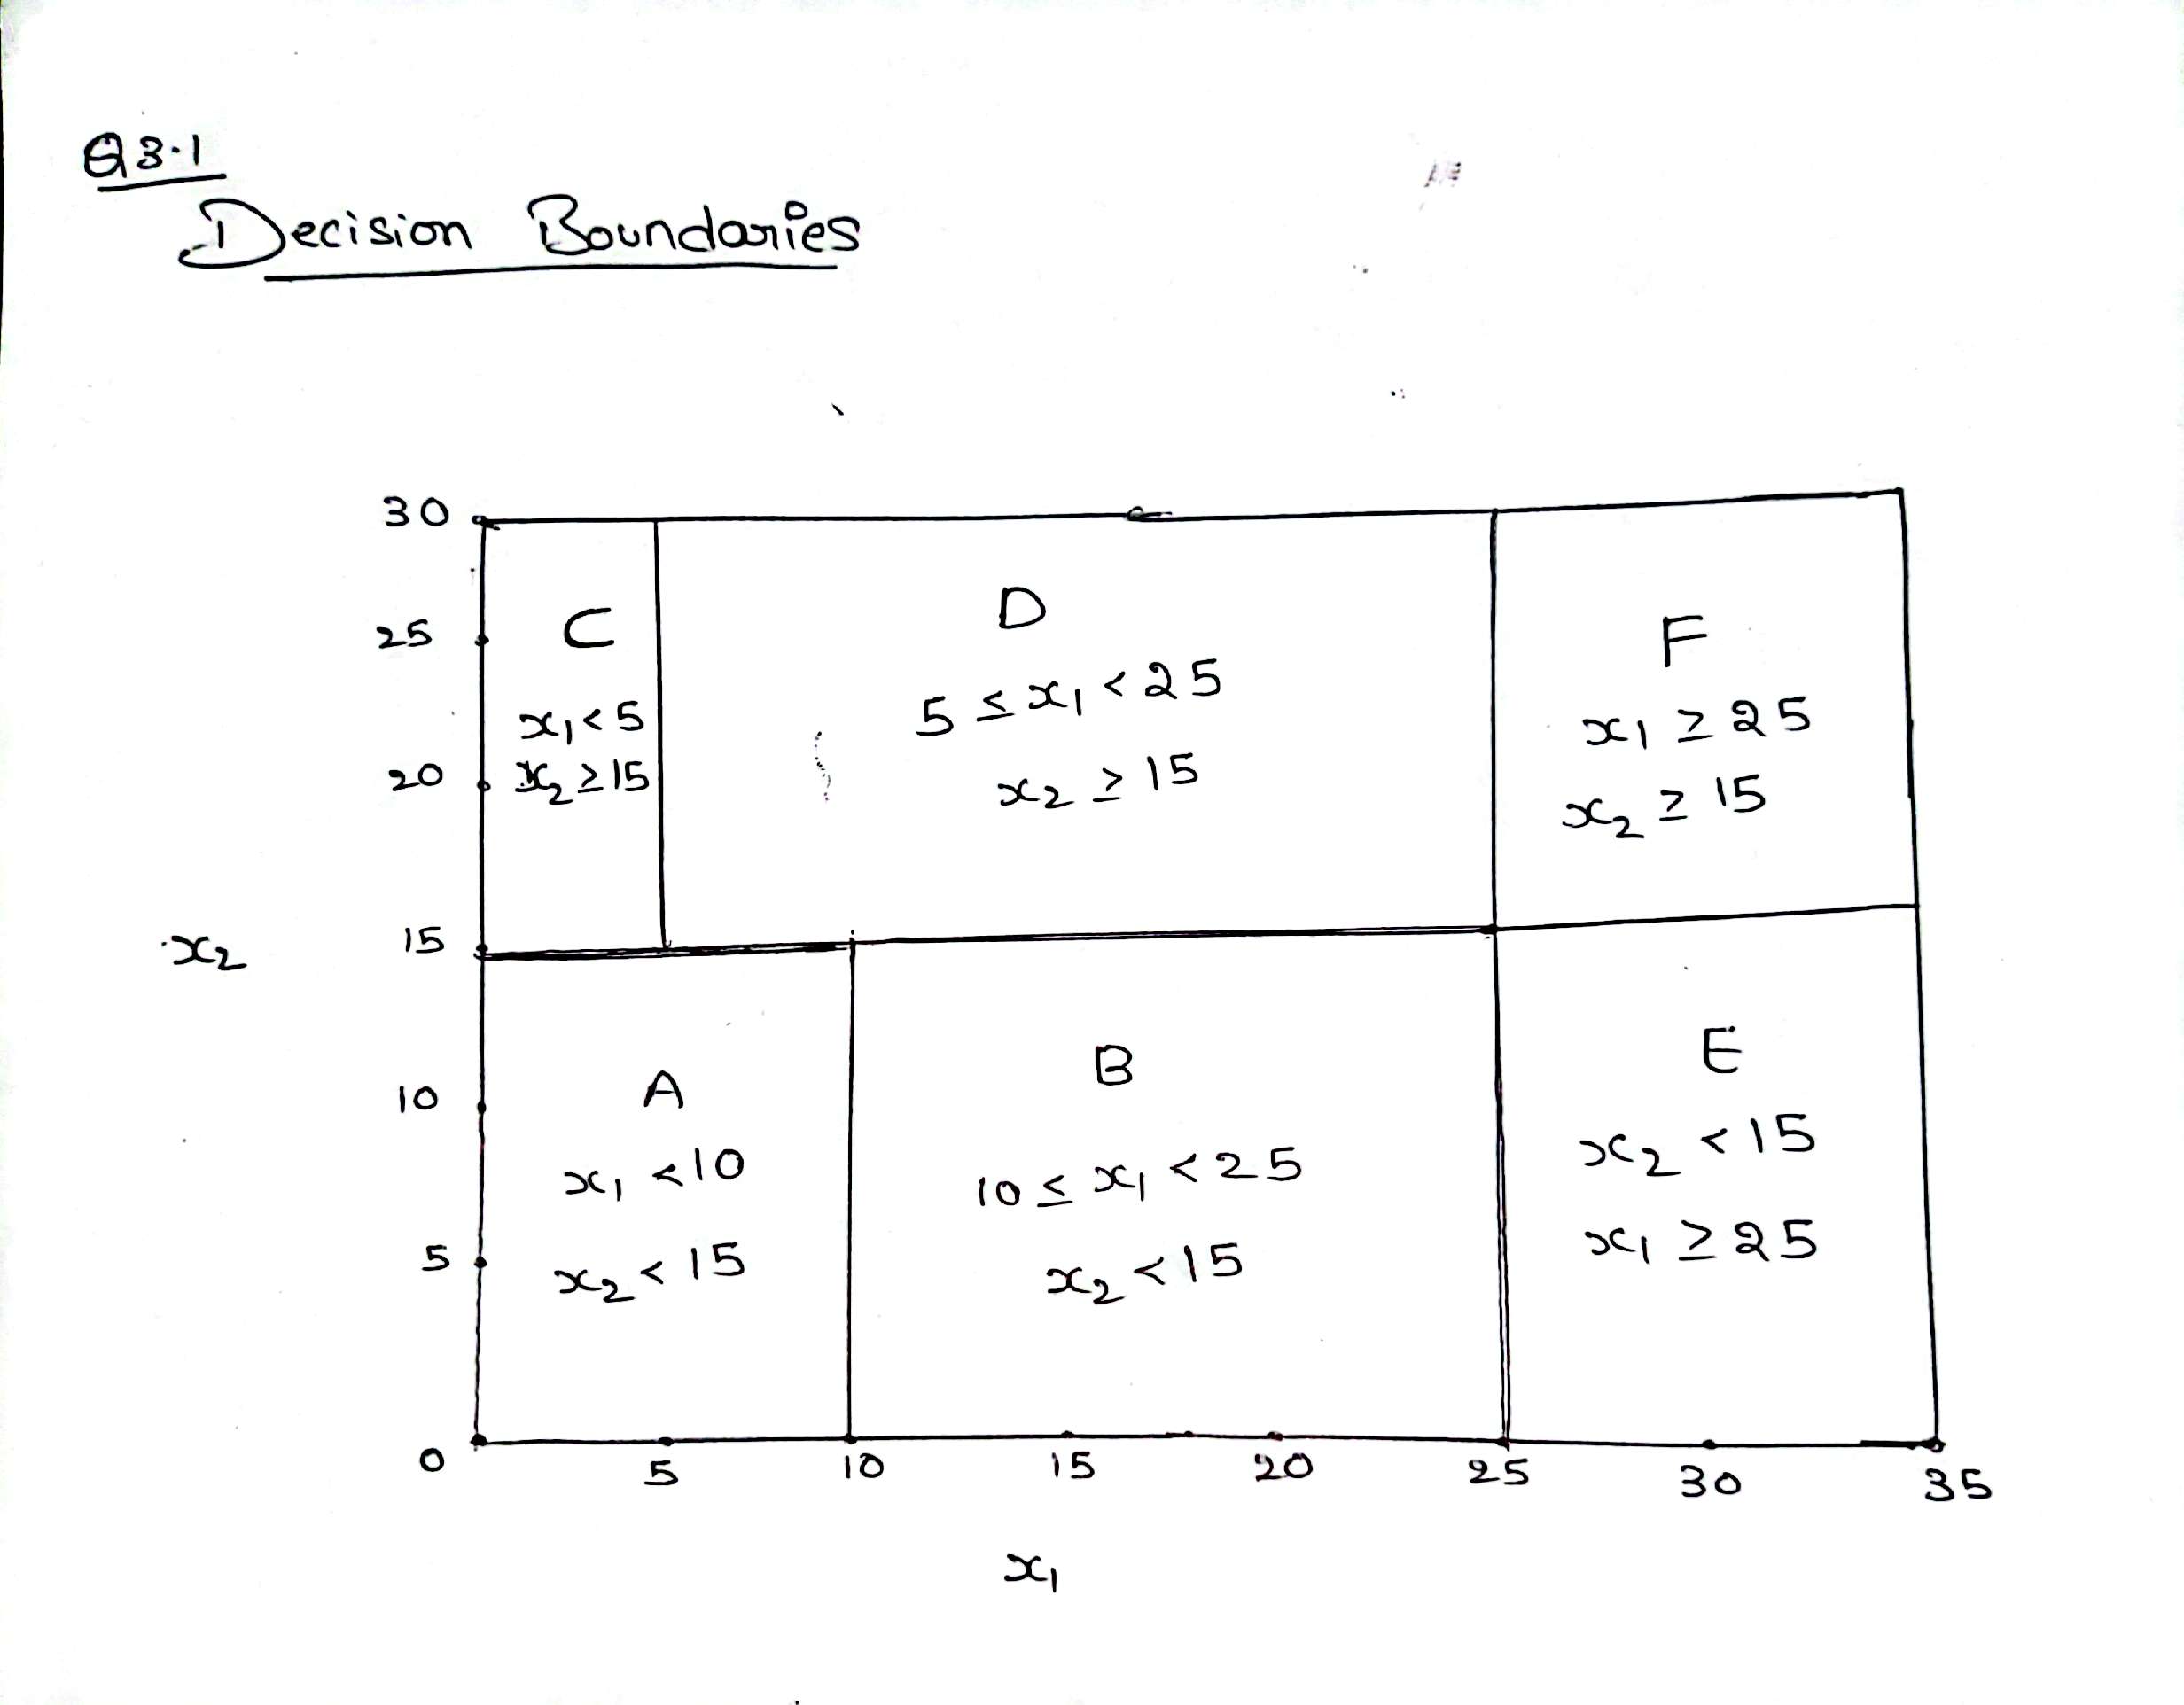 Q3.1
Decision Boundaries
30
25
20
15
10
5
0
x₂
C
x₁ < 5
x₂ ≥ 15
D
5 ≤ x₁ < 25
x₂ ≥ 15
F
x₁ ≥ 25
x₂ ≥ 15
A
x₁ < 10
x₂ < 15
B
10 ≤ x₁ < 25
x₂ < 15
E
x₂ < 15
x₁ ≥ 25
5 10 15 20 25 30 35
x₁